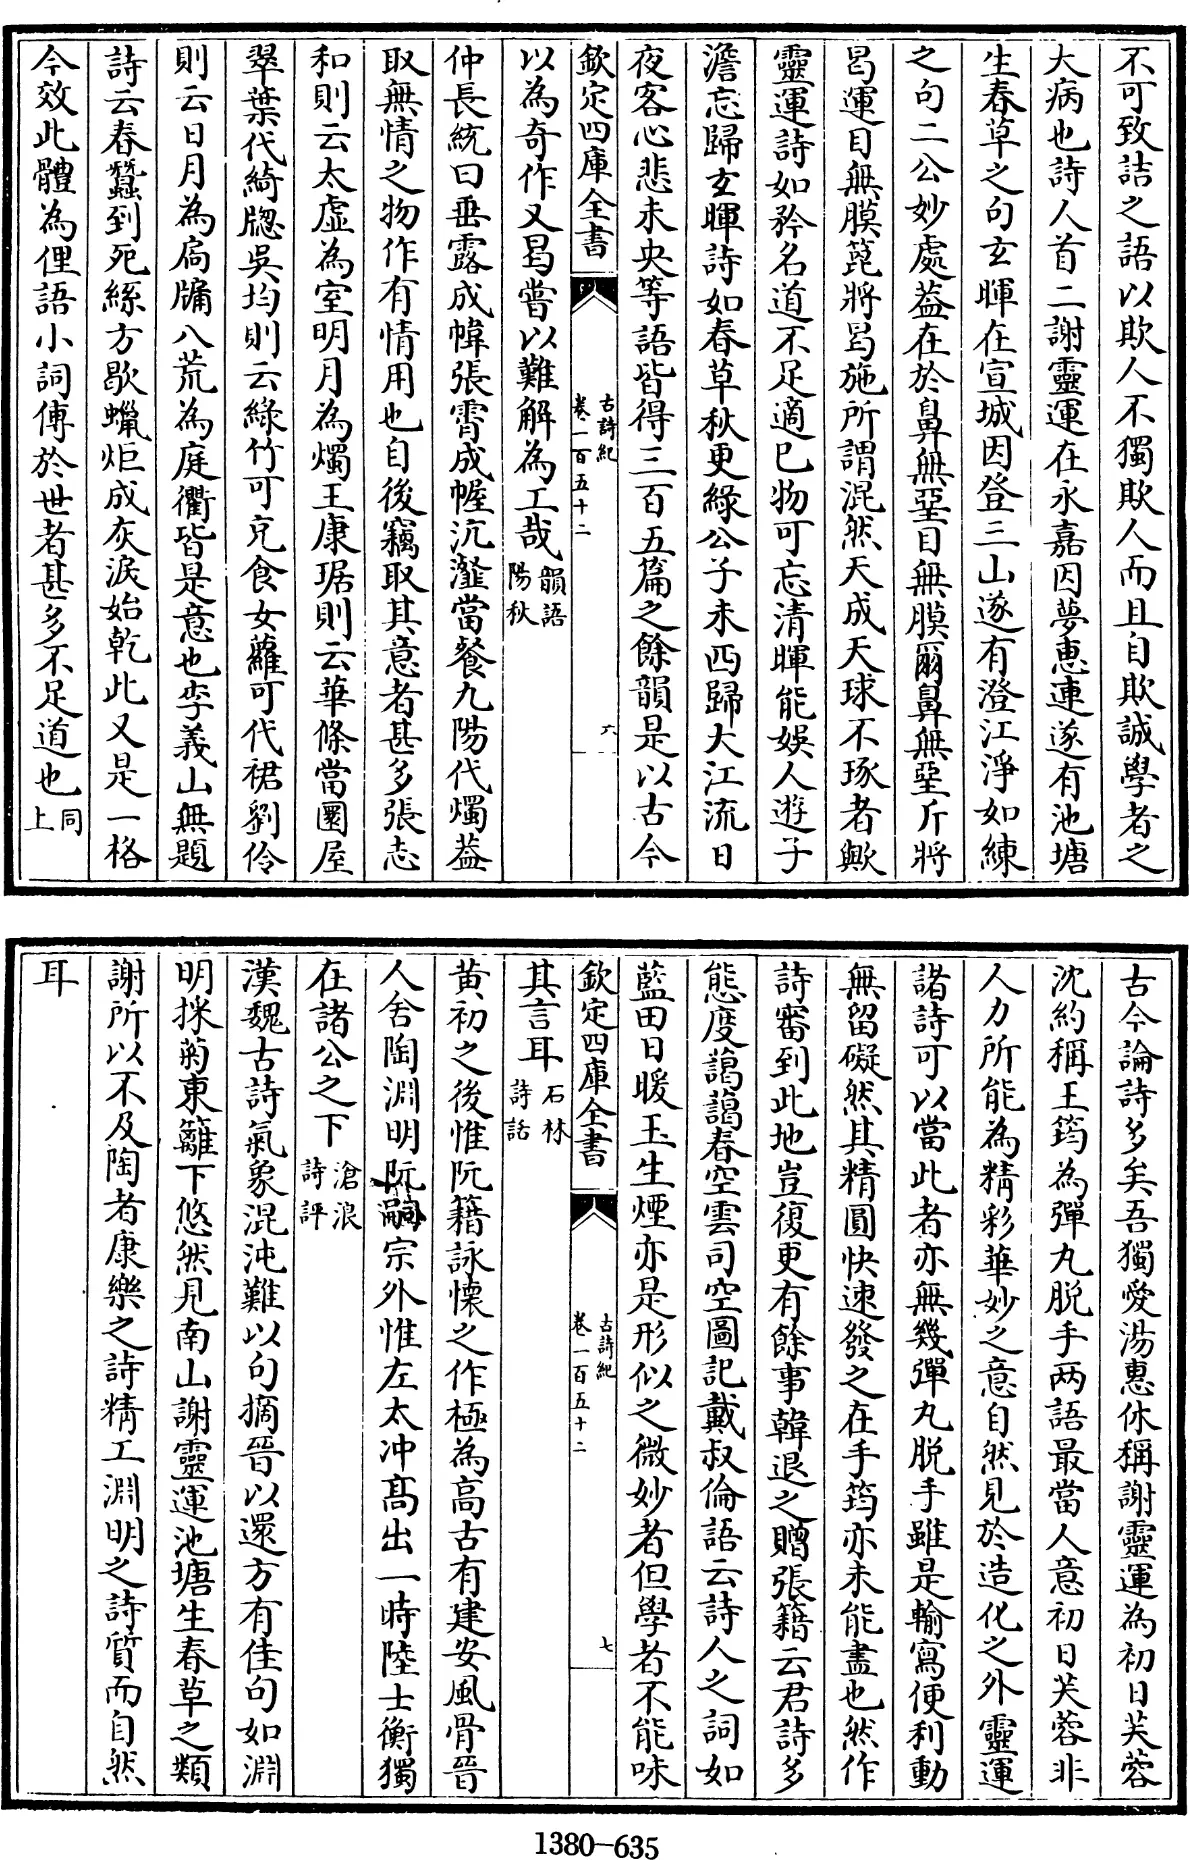 不可致詰之語以欺人不獨欺人而且自欺誠學者之
大病也詩人首二謝靈運在永嘉因夢惠連遂有池塘
生春草之句玄暉在宣城因登三山遂有澄江淨如練
之句二公妙處葢在於鼻無堊目無膜爾鼻無堊斤將
曷運目無膜篦將曷施所謂混然天成天球不琢者歟
靈運詩如矜名道不足適已物可忘清暉能娛人遊子
澹忘歸玄暉詩如春草秋更綠公子未西歸大江流日
夜客心悲未央等語皆得三百五篇之餘韻是以古今
欽定四庫全書
古詩紀
卷一百五十二
六
以為奇作又曷嘗以難解為工哉韻語陽秋
仲長統曰垂露成幃張霄成幄沆瀣當餐九陽代燭葢
取無情之物作有情用也自後竊取其意者甚多張志
和則云太虛為室明月為燭王康琚則云華條當圜屋
翠葉代綺牎吳均則云綠竹可充食女蘿可代裙劉伶
則云日月為扃牖八荒為庭衢皆是意也李義山無題
詩云春蠶到死絲方歇蠟炬成灰淚始乾此又是一格
今效此體為俚語小詞傳於世者甚多不足道也同上
古今論詩多矣吾獨愛湯惠休稱謝靈運為初日芙蓉
沈約稱王筠為彈丸脫手兩語最當人意初日芙蓉非
人力所能為精彩華妙之意自然見於造化之外靈運
諸詩可以當此者亦無幾彈丸脫手雖是輸寫便利動
無留礙然其精圓快速發之在手筠亦未能盡也然作
詩審到此地豈復更有餘事韓退之贈張籍云君詩多
態度藹藹春空雲司空圖記戴叔倫語云詩人之詞如
藍田日暖玉生煙亦是形似之微妙者但學者不能味
欽定四庫全書
古詩紀
卷一百五十二
七
其言耳石林詩話
黃初之後惟阮籍詠懷之作極為高古有建安風骨晉
人舍陶淵明阮嗣宗外惟左太冲高出一時陸士衡獨
在諸公之下滄浪詩評
漢魏古詩氣象混沌難以句摘晉以還方有佳句如淵
明採菊東籬下悠然見南山謝靈運池塘生春草之類
謝所以不及陶者康樂之詩精工淵明之詩質而自然
耳
1380-635